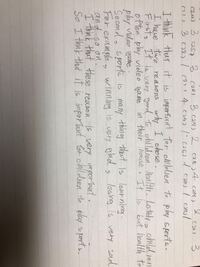 I think that it is important for children to play sports.
I have two reasons why I chose
First, It is very good children health. Lately children
often play video game in their house. It is bad health to
play video game.
Second, sports is many thing that is learning.
For example, winning is very glad, losing is very sad
and so on.
I think that these reason is very important.
So I think that it is important for children to play sports.